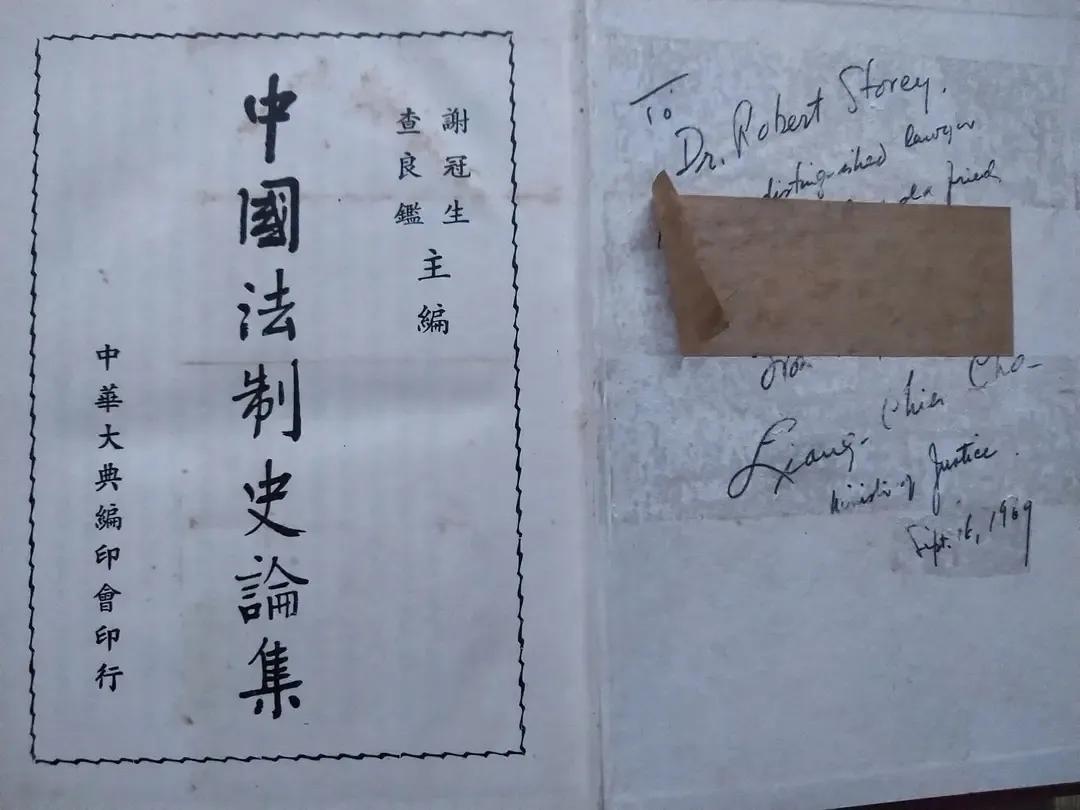 謝冠生
查良鑑
主編
中國法制史論集
中華大典編印會印行
To
Dr. Robert Storey.
distinguished lawyer
friend
from
Liang-Chien Cha
Minister of Justice.
Sept. 16, 1969